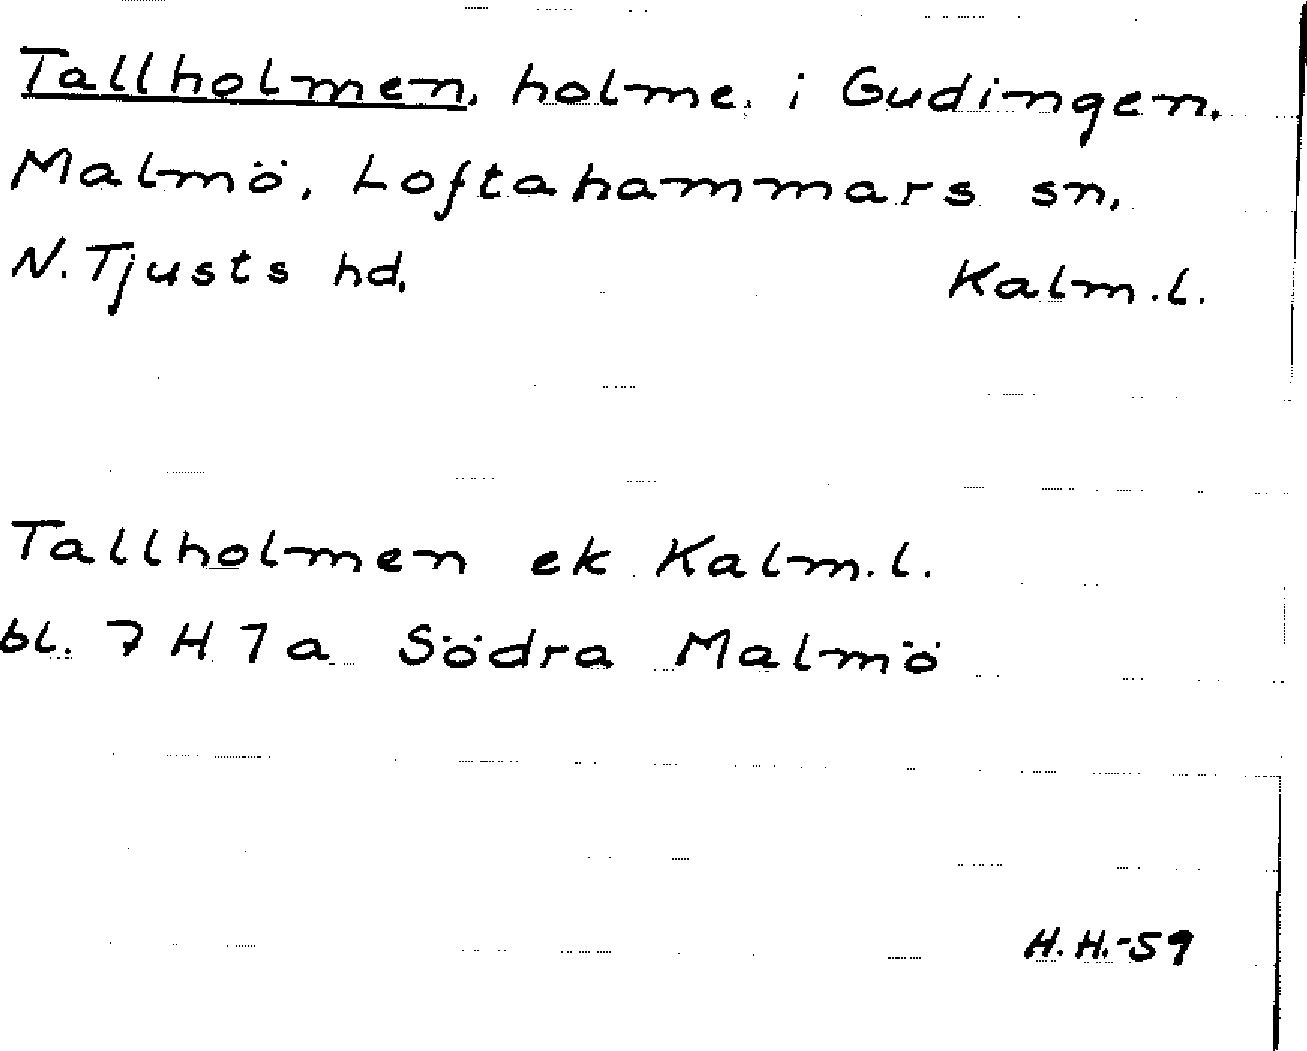 Tallholmen, holme, i Gudingen,
Malmö, Loftahammars sn,
N. Tjusts hd, Kalm.l.
Tallholmen ek Kalm.l.
bl. 7 H 7 a Södra Malmö
H.H.-59